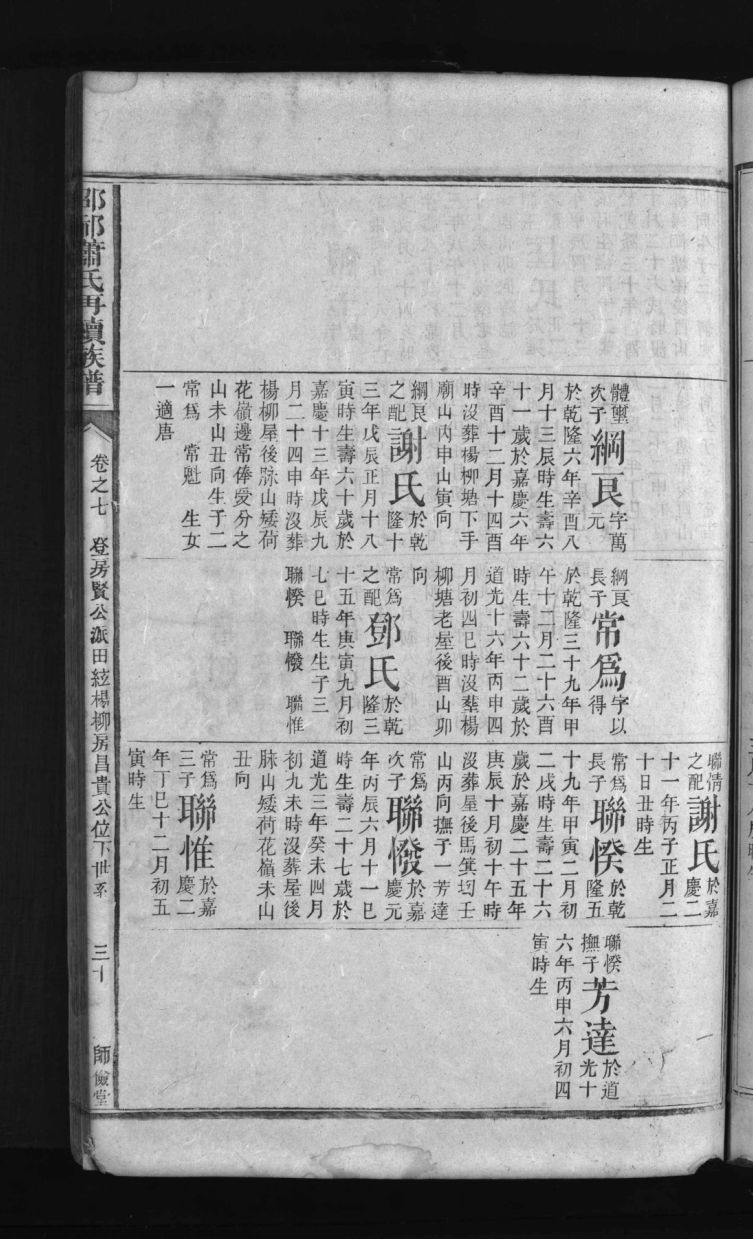 體璽
次子
綱艮
字萬
元
於乾隆六年辛酉八
月十三辰時生壽六
十一歲於嘉慶六年
辛酉十二月十四酉
時沒葬楊柳塘下手
廟山丙申山寅向
綱艮
之配
謝氏
於乾
隆十
三年戊辰正月十八
寅時生壽六十歲於
嘉慶十三年戊辰九
月二十四申時沒葬
楊柳屋後脉山矮荷
花嶺邊常俸受分之
山未山丑向生子二
常爲 常魁 生女
一適唐
綱艮
長子
常爲
字以
得
於乾隆三十九年甲
午十二月二十六酉
時生壽六十二歲於
道光十六年丙申四
月初四巳時沒塟楊
柳塘老屋後酉山卯
向
常爲
之配
鄧氏
於乾
隆三
十五年庚寅九月初
七巳時生生子三
聯悞 聯憿 聯惟
聯情
之配
謝氏
於嘉
慶二
十一年丙子正月二
十日丑時生
常爲
長子
聯悞
於乾
隆五
十九年甲寅二月初
二戌時生壽二十六
歲於嘉慶二十五年
庚辰十月初十午時
沒葬屋後馬箕坳壬
山丙向撫子一芳達
常爲
次子
聯憿
於嘉
慶元
年丙辰六月十一巳
時生壽二十七歲於
道光三年癸未四月
初九未時沒葬屋後
脉山矮荷花嶺未山
丑向
常爲
三子
聯惟
於嘉
慶二
年丁巳十二月初五
寅時生
聯悞
撫子
芳達
於道
光十
六年丙申六月初四
寅時生
邵祁蕭氏再續族譜
卷之七 登房賢公派田絃楊柳房昌貴公位下世系 三十
師儉堂